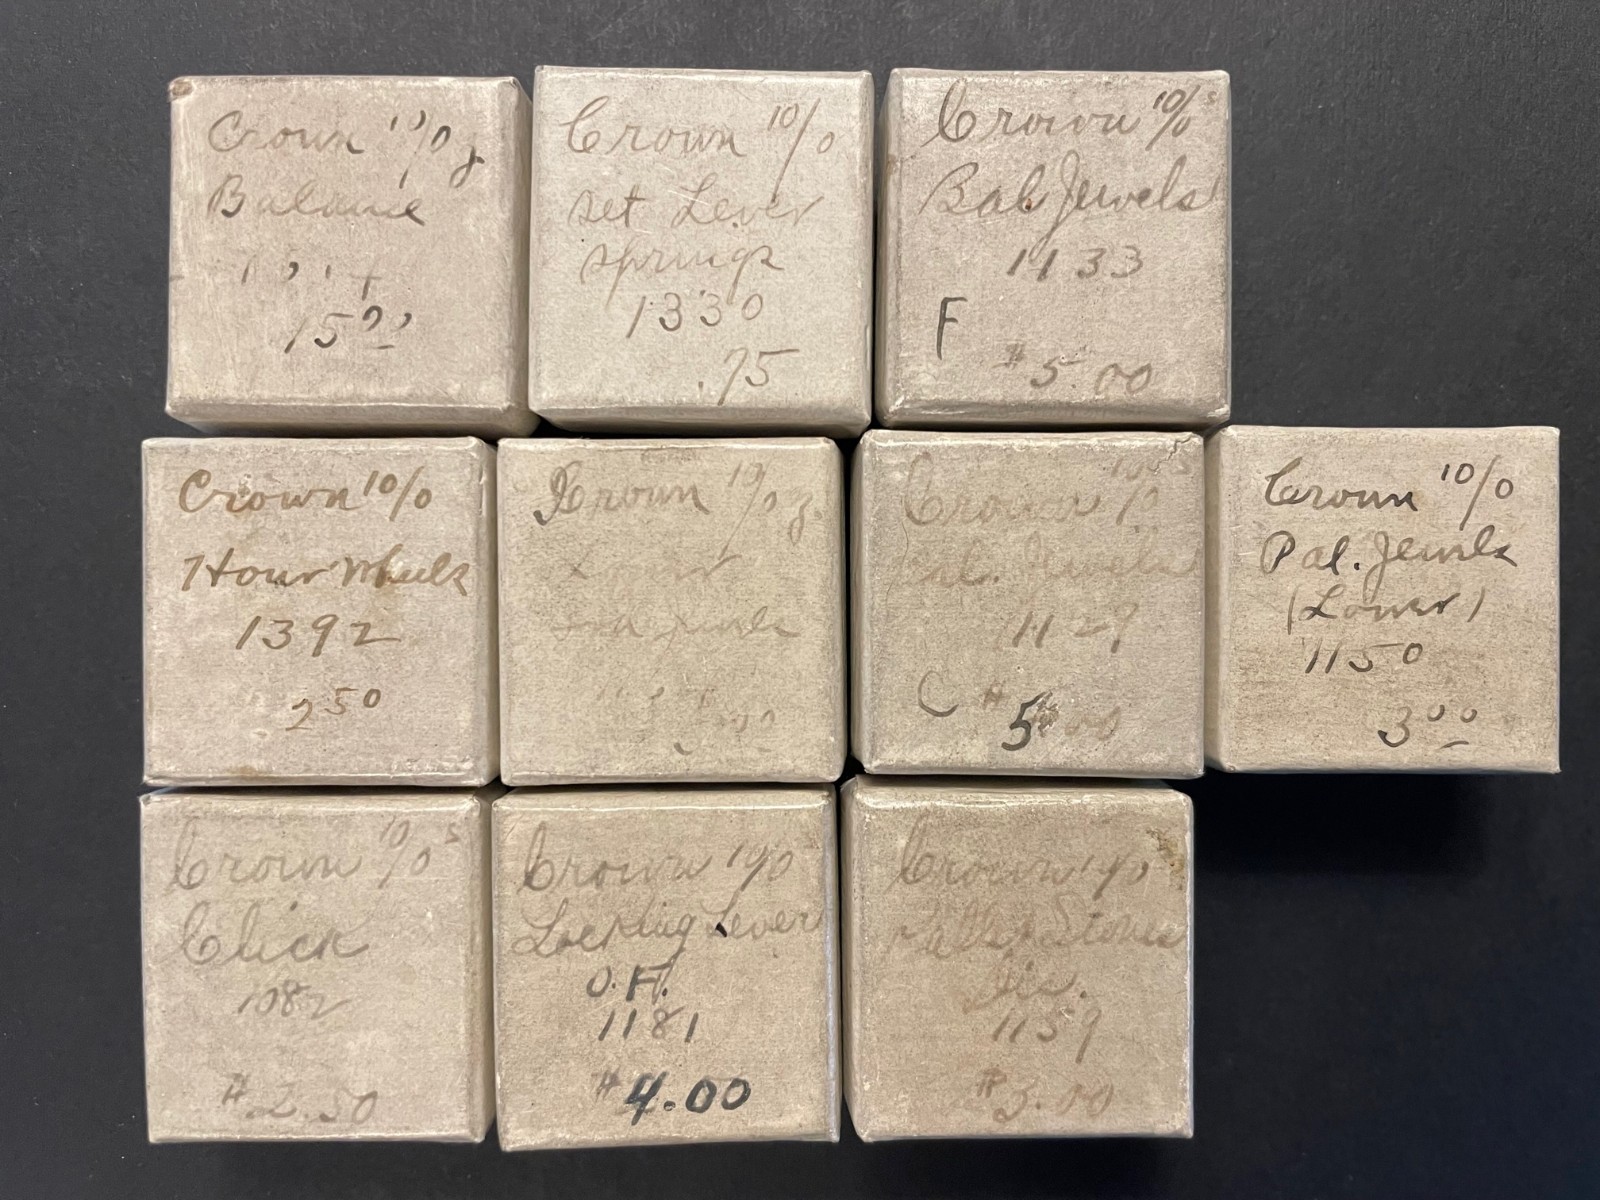 Crown 10/0
Balance
15 00
Crown 10/0
set Lever
springs
1330
.75
Crown 10/0 s
Bal Jewels
1133
F
$5.00
Crown 10/0
Hour Wheels
1392
2 50
Crown 10/0
Crown
Jewels
1127
C $5.00
Crown 10/0
Pal. Jewels
(Lower)
1150
3 00
Crown 10/0 s
Click
1082
$2.50
Crown 10/0
Locking Lever
O.F.
1181
$4.00
Crown 10/0
Stones
1159
$3.00